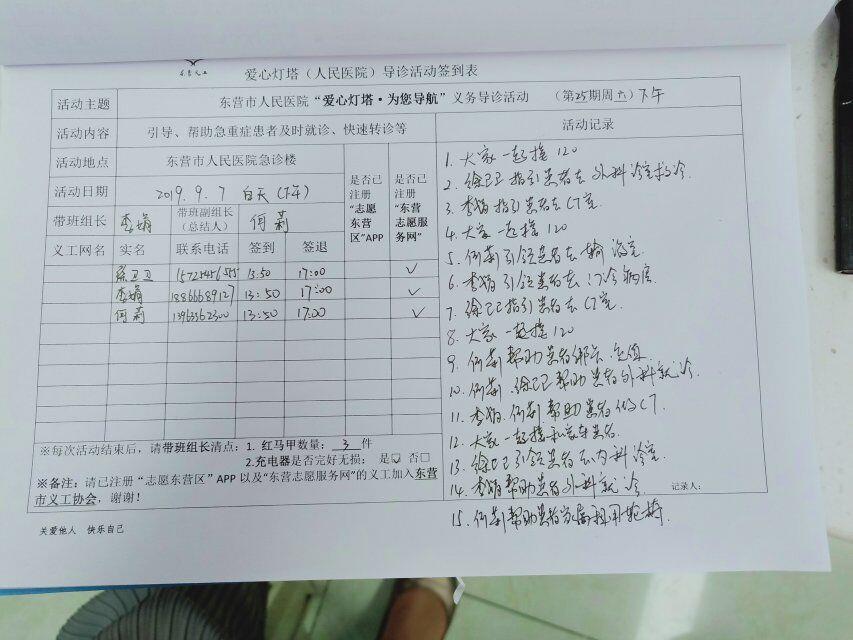 东营义工
爱心灯塔（人民医院）导诊活动签到表
活动主题 东营市人民医院“爱心灯塔·为您导航”义务导诊活动 （第25期周六）下午
活动内容 引导、帮助急重症患者及时就诊、快速转诊等
活动地点 东营市人民医院急诊楼
活动日期 2019.9.7 白天(下午)
带班组长 李娟 带班副组长（总结人） 何莉
是否已注册“志愿东营区”APP
是否已注册“东营志愿服务网”
义工网名 实名 联系电话 签到 签退
徐卫卫 13:50 17:00 ✓
李娟 18866689127 13:50 17:00 ✓
何莉 13963562300 13:50 17:00 ✓
※每次活动结束后，请带班组长清点：1. 红马甲数量：3 件
2.充电器是否完好无损： 是☑ 否□
※备注：请已注册“志愿东营区”APP 以及“东营志愿服务网”的义工加入东营
市义工协会，谢谢！
活动记录
1. 大家一起接120
2. 徐卫卫指引患者去外科诊室就诊
3. 李娟指引患者去CT室
4. 大家一起接120
5. 何莉引领患者去输液室
6. 李娟引领患者去门诊病房
7. 徐卫卫指引患者去CT室
8. 大家一起接120
9. 何莉帮助患者绑卡、充值
10. 何莉、徐卫卫帮助患者外科就诊
11. 李娟、何莉帮助患者做CT
12. 大家一起接私家车患者
13. 徐卫卫引领患者去内科诊室
14. 李娟帮助患者外科就诊
15. 何莉帮助患者家属租用轮椅
记录人：
关爱他人 快乐自己